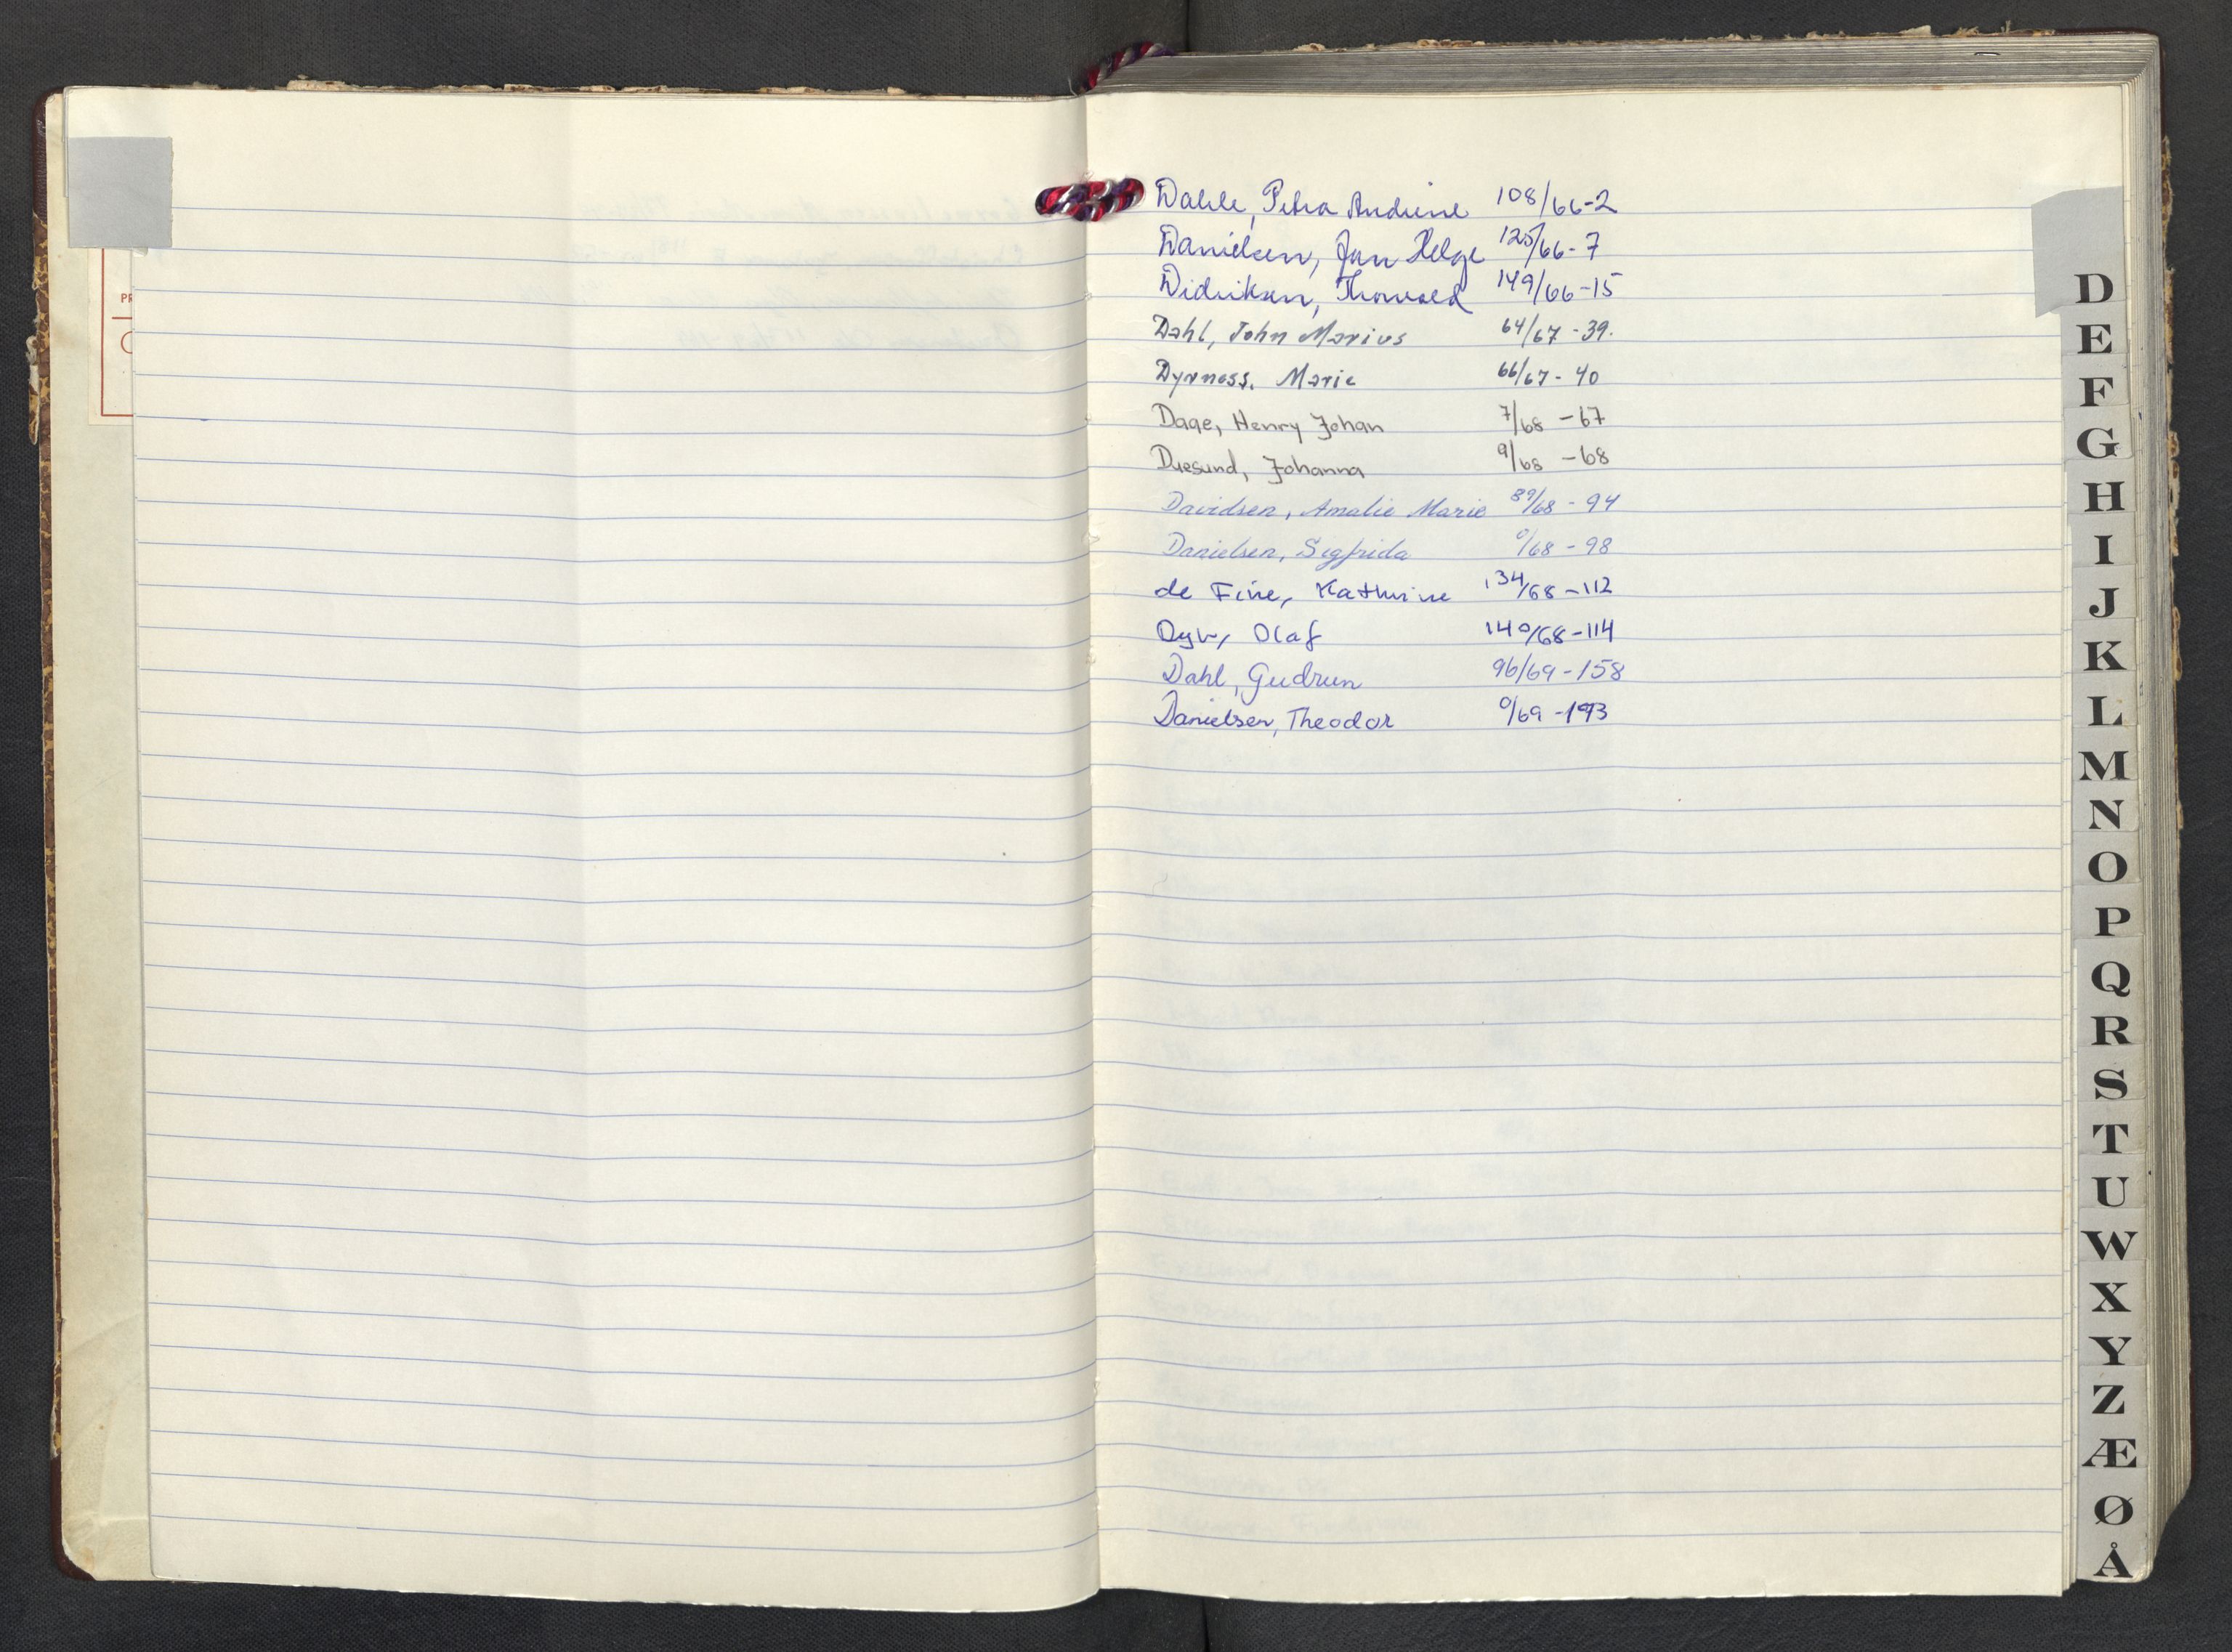 Dahle, Petra Andrine 108/66-2
Danielsen, Jan Helge 125/66-7
Didriksen, Thorvald 149/66-15
Dahl, John Marius 64/67-39.
Dyrness, Marie 66/67-40
Dage, Henry Johan 7/68-67
Duesund, Johanna 9/68-68
Davidsen, Amalie Marie 89/68-94
Danielsen, Sigfrida 0/68-98
de Fine, Kathrine 134/68-112
Dyr, Olaf 140/68-114
Dahl, Gudrun 96/69-158
Danielsen, Theodor 0/69-193
PR
D
E
F
G
H
I
J
K
L
M
N
O
P
Q
R
S
T
U
W
X
Y
Z
Æ
Ø
Å